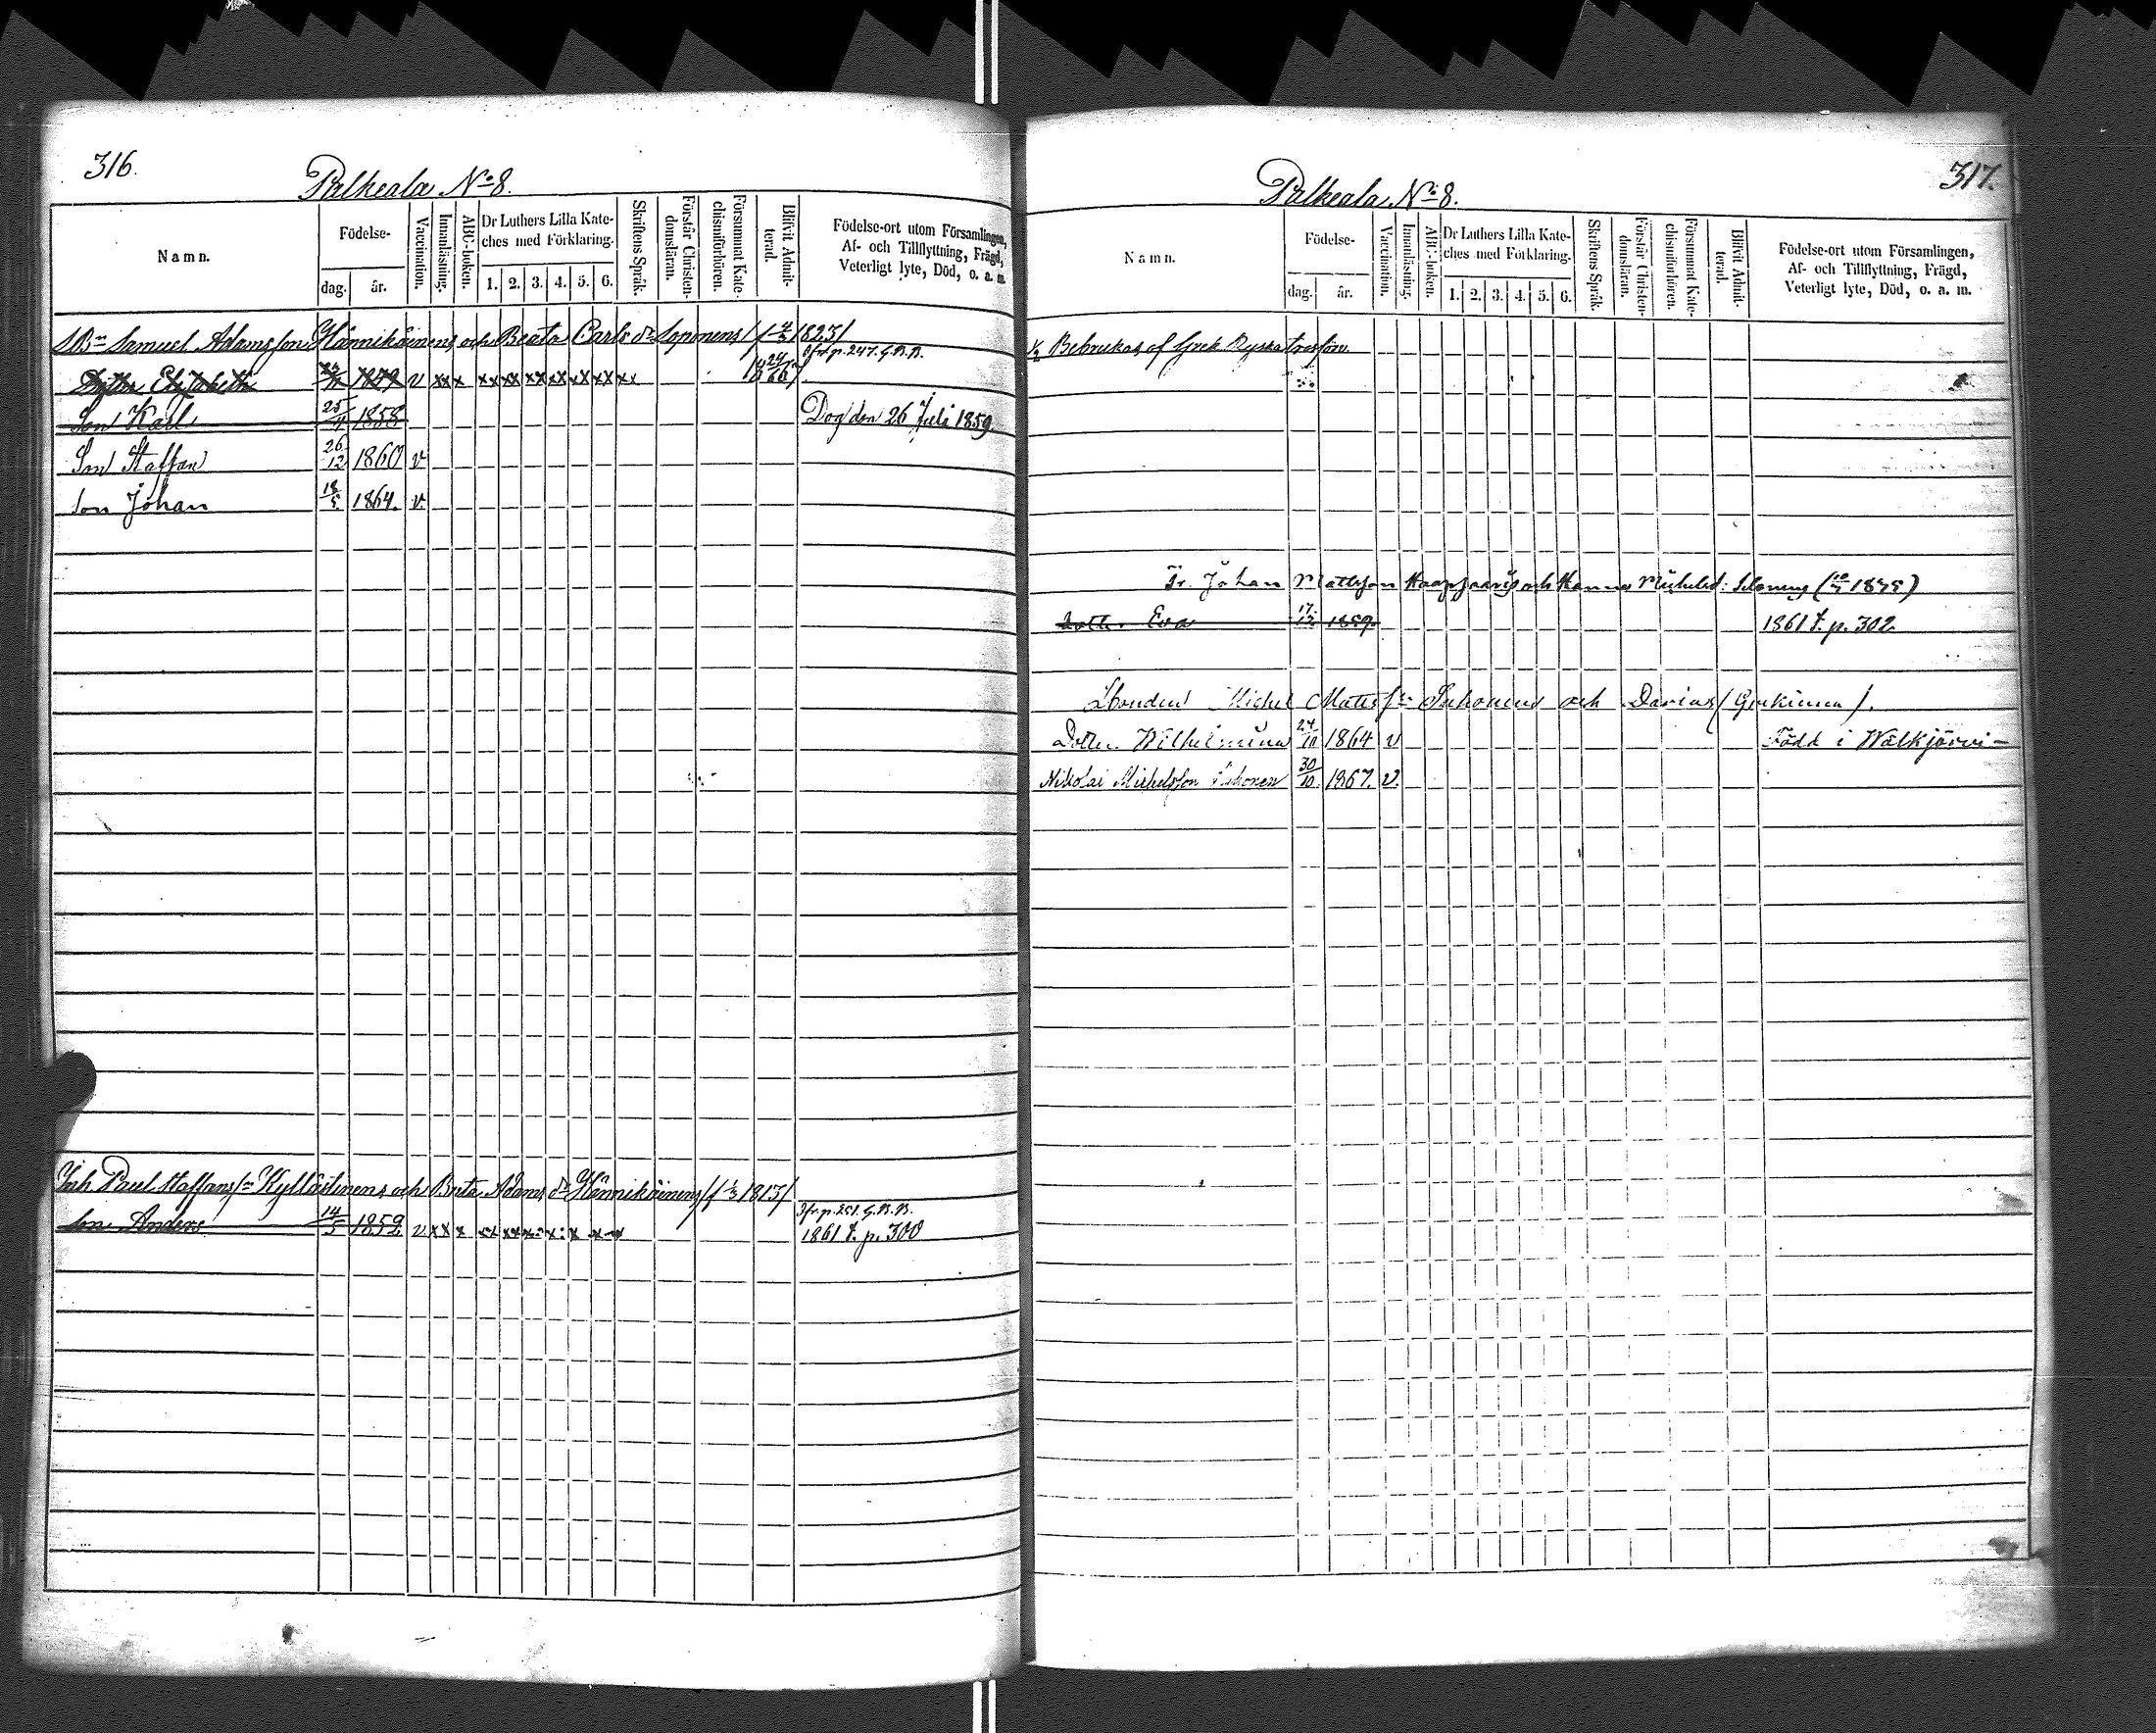 316.
Palkeala No 8.
Namn.
Födelse-
dag.
år.
Vaccination.
Innanläsning.
ABC-boken.
Dr Luthers Lilla Kate-
ches med Förklaring.
1. 2. 3. 4. 5. 6.
Skriftens Språk.
Förstår Christen-
domsläran.
Försummat Kate-
chismiförhören.
Blifvit Admit-
terad.
Födelse-ort utom Församlingen,
Af- och Tillflyttning, Frägd,
Veterligt lyte, Död, o. a. m.
Samuel Adamsson Hännikäinens och Beata Carls dr Loponens 1823/
fr. p. 247. G.B.B.
Dotter Elisabeth 1849 v xx x xx xx xx xx xx xx xx 18 24/6 67
Son Karl 25/4 1858 Dog den 26 Juli 1859.
Son Staffan 26/12 1860 v
Son Johan 18/5 1864. v.
Inh. Paul Staffans sn Kylläitinens och Brita Adams dr Hännikäinens 1815/
fr. p. 251. G.B.B.
Son Anders 14/5 1852 v xx x 1861 f. p. 300
317.
Palkeala No 8.
Namn.
Födelse-
dag.
år.
Vaccination.
Innanläsning.
ABC-boken.
Dr Luthers Lilla Kate-
ches med Förklaring.
1. 2. 3. 4. 5. 6.
Skriftens Språk.
Förstår Christen-
domsläran.
Försummat Kate-
chismiförhören.
Blifvit Admit-
terad.
Födelse-ort utom Församlingen,
Af- och Tillflyttning, Frägd,
Veterligt lyte, Död, o. a. m.
1/2 Bebrukas af Grek Ryska
Johan Mattsson och Hanna Michelsd.
Dottr. Eva 17/12 1859. 1861 f. p. 302
Michel Matts sn Inkonens och Darias
Dotter Wilhelmina 24/10 1864 v Född i Walkjärvi
Nikolai Michelsson Inkonen 30/10. 1867. v.